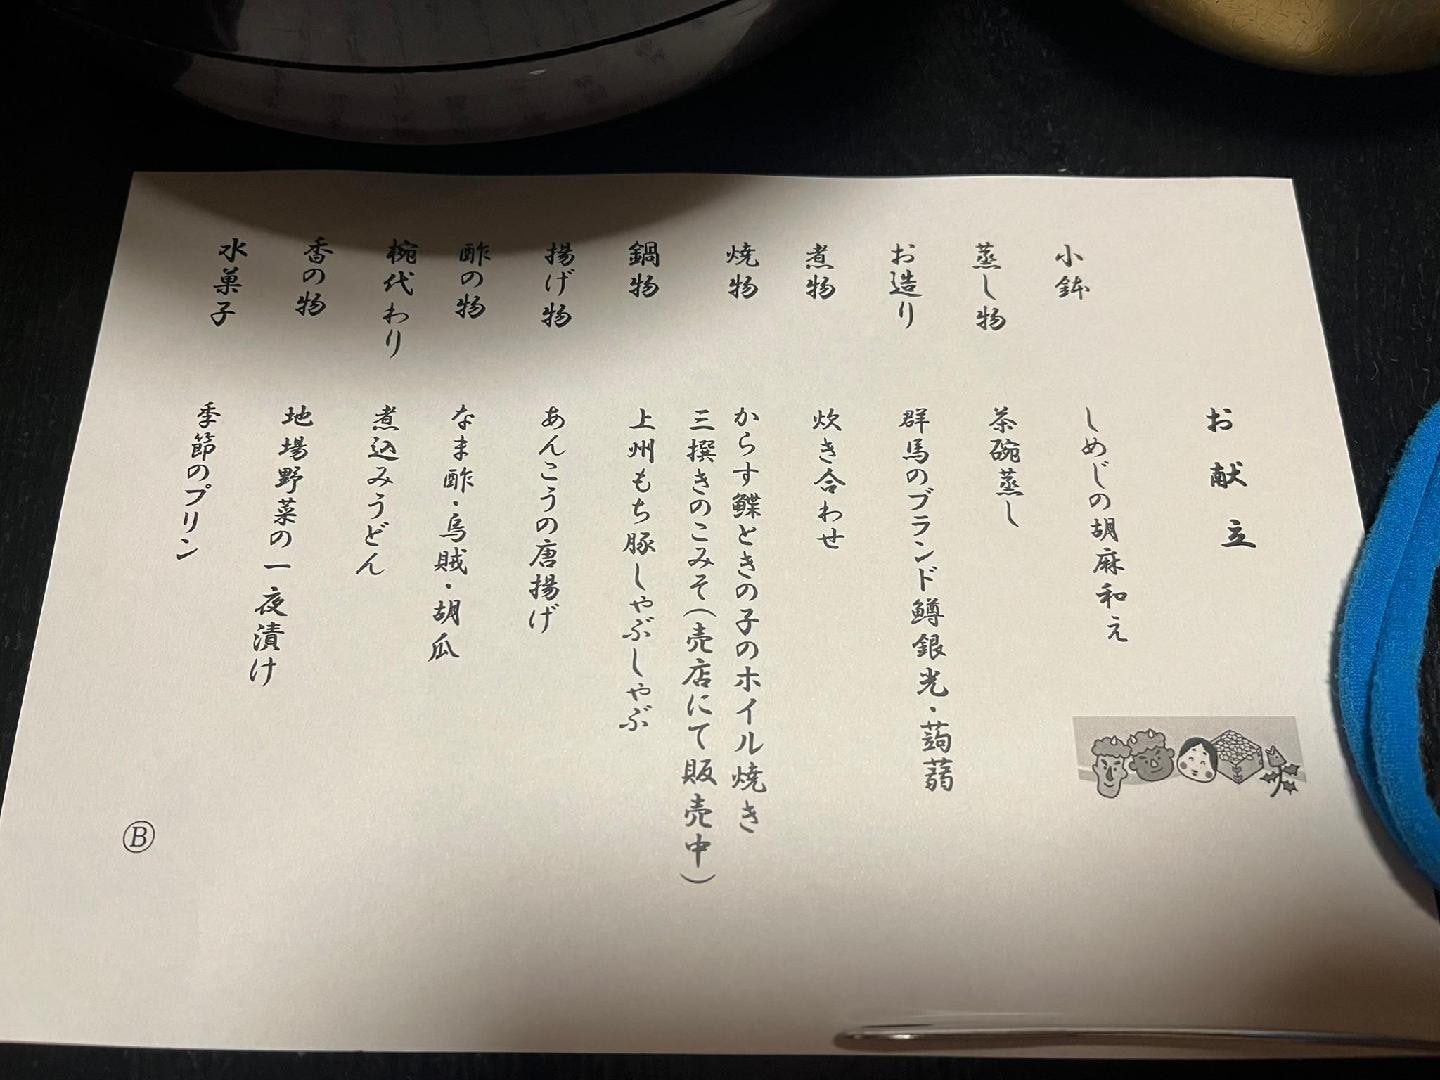 お献立
小鉢　しめじの胡麻和え
蒸し物　茶碗蒸し
お造り　群馬のブランド鱒銀光・蒟蒻
煮物　炊き合わせ
焼物　からす鰈ときの子のホイル焼き
三撰きのこみそ(売店にて販売中)
鍋物　上州もち豚しゃぶしゃぶ
揚げ物　あんこうの唐揚げ
酢の物　なま酢・烏賊・胡瓜
椀代わり　煮込みうどん
香の物　地場野菜の一夜漬け
水菓子　季節のプリン
Ⓑ